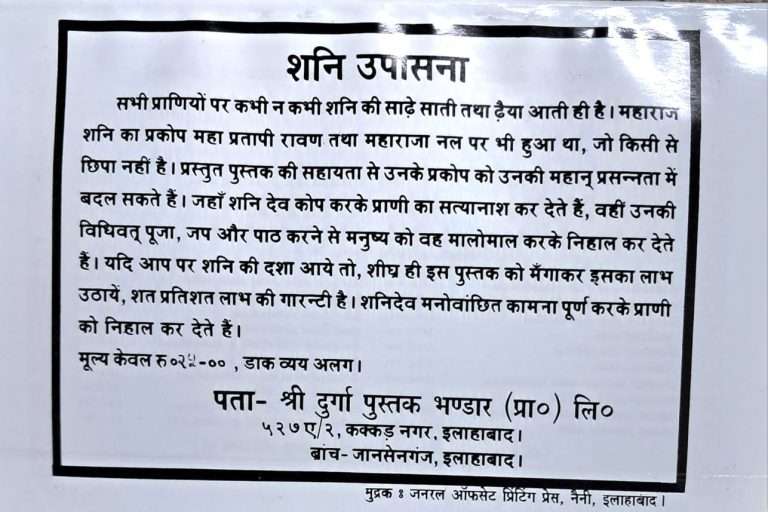 शनि उपासना
सभी प्राणियों पर कभी न कभी शनि की साढ़े साती तथा ढ़ैया आती ही है। महाराज
शनि का प्रकोप महा प्रतापी रावण तथा महाराजा नल पर भी हुआ था, जो किसी से
छिपा नहीं है। प्रस्तुत पुस्तक की सहायता से उनके प्रकोप को उनकी महान् प्रसन्नता में
बदल सकते हैं। जहाँ शनि देव कोप करके प्राणी का सत्यानाश कर देते हैं, वहीं उनकी
विधिवत् पूजा, जप और पाठ करने से मनुष्य को वह मालोमाल करके निहाल कर देते
हैं। यदि आप पर शनि की दशा आये तो, शीघ्र ही इस पुस्तक को मँगाकर इसका लाभ
उठायें, शत प्रतिशत लाभ की गारन्टी है। शनिदेव मनोवांछित कामना पूर्ण करके प्राणी
को निहाल कर देते हैं।
मूल्य केवल रु०२५-०० , डाक व्यय अलग।
पता- श्री दुर्गा पुस्तक भण्डार (प्रा०) लि०
५२७ए/२, कक्कड़ नगर, इलाहाबाद।
ब्रांच- जानसेनगंज, इलाहाबाद।
मुद्रक : जनरल ऑफसेट प्रिंटिंग प्रेस, नैनी, इलाहाबाद।